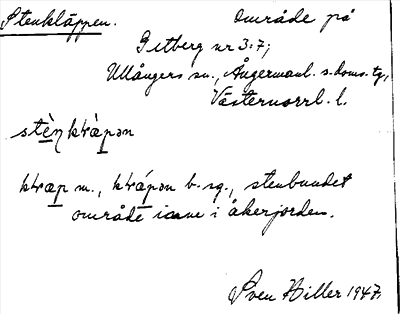 Stenkläppen. Område på
Getberg nr 3:7;
Ullångers sn., Ångermanl. s. doms. tg,
Västernorrl. l.
stèn̥klàpən
klap m., klápən b. sg., stenbundet
område inne i åkerjorden.
Sven Hiller 1947.